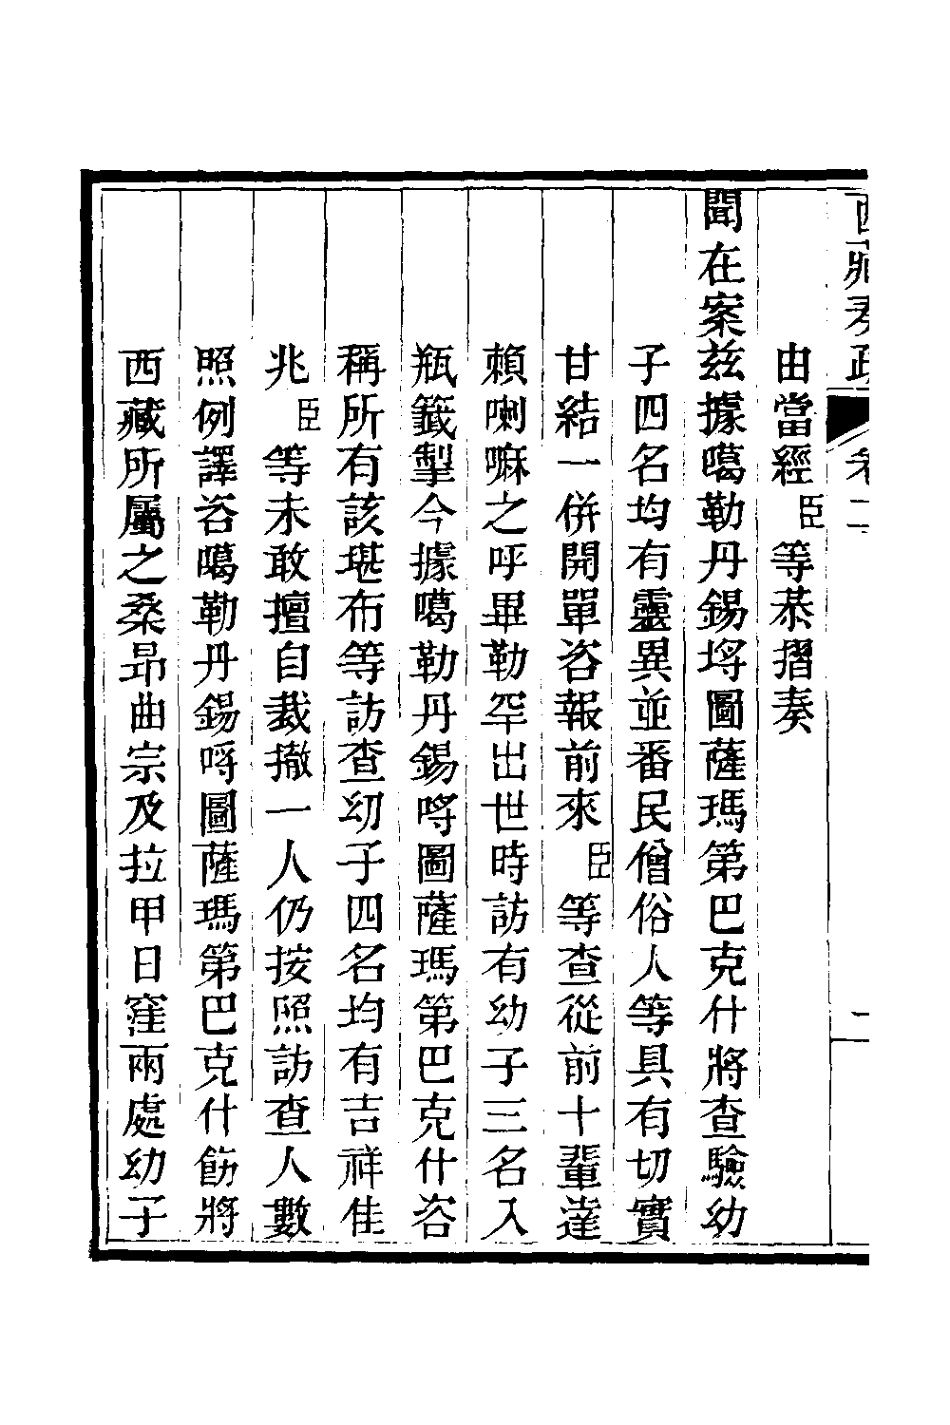 西藏奏疏 卷二 二
由當經臣等恭摺奏
聞在案茲據噶勒丹錫埒圖薩瑪第巴克什將查驗幼
子四名均有靈異並番民僧俗人等具有切實
甘結一併開單咨報前來臣等查從前十輩達
賴喇嘛之呼畢勒罕出世時訪有幼子三名入
瓶籤掣今據噶勒丹錫哷圖薩瑪第巴克什咨
稱所有該堪布等訪查幼子四名均有吉祥佳
兆臣等未敢擅自裁撤一人仍按照訪查人數
照例譯咨噶勒丹錫哷圖薩瑪第巴克什飭將
西藏所屬之桑昂曲宗及拉甲日窪兩處幼子